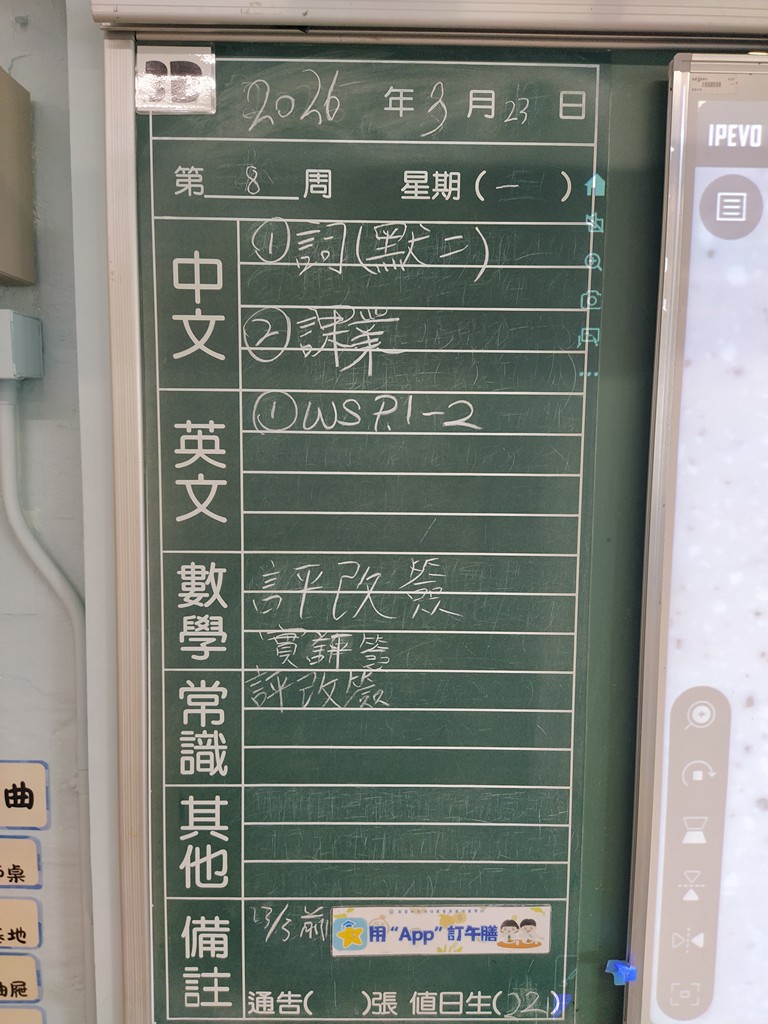 2026 年 3 月 23 日
第 8 周 星期(一)
中文
①詞(默二)
②課業
英文
①WS P.1-2
數學
評改簽
實評簽
常識
評改簽
其他
備註
23/3前
用“App”訂午膳
通告( )張 值日生(22)
IPEVO
曲
桌
地